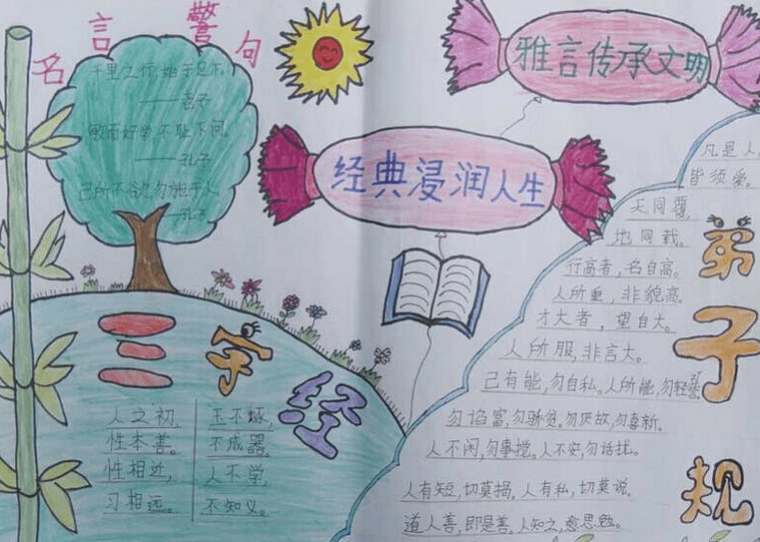 名言警句
千里之行,始于足下。
——老子
敏而好学,不耻下问。
——孔子
己所不欲,勿施于人
——孔子
雅言传承文明
经典浸润人生
三字经
人之初,
性本善。
性相近,
习相远。
玉不琢,
不成器。
人不学,
不知义。
弟子规
凡是人,
皆须爱。
天同覆,
地同载。
行高者,名自高。
人所重,非貌高。
才大者,望自大。
人所服,非言大。
己有能,勿自私。人所能,勿轻訾。
勿谄富,勿骄贫。勿厌故,勿喜新。
人不闲,勿事搅。人不安,勿话扰。
人有短,切莫揭。人有私,切莫说。
道人善,即是善。人知之,愈思勉。